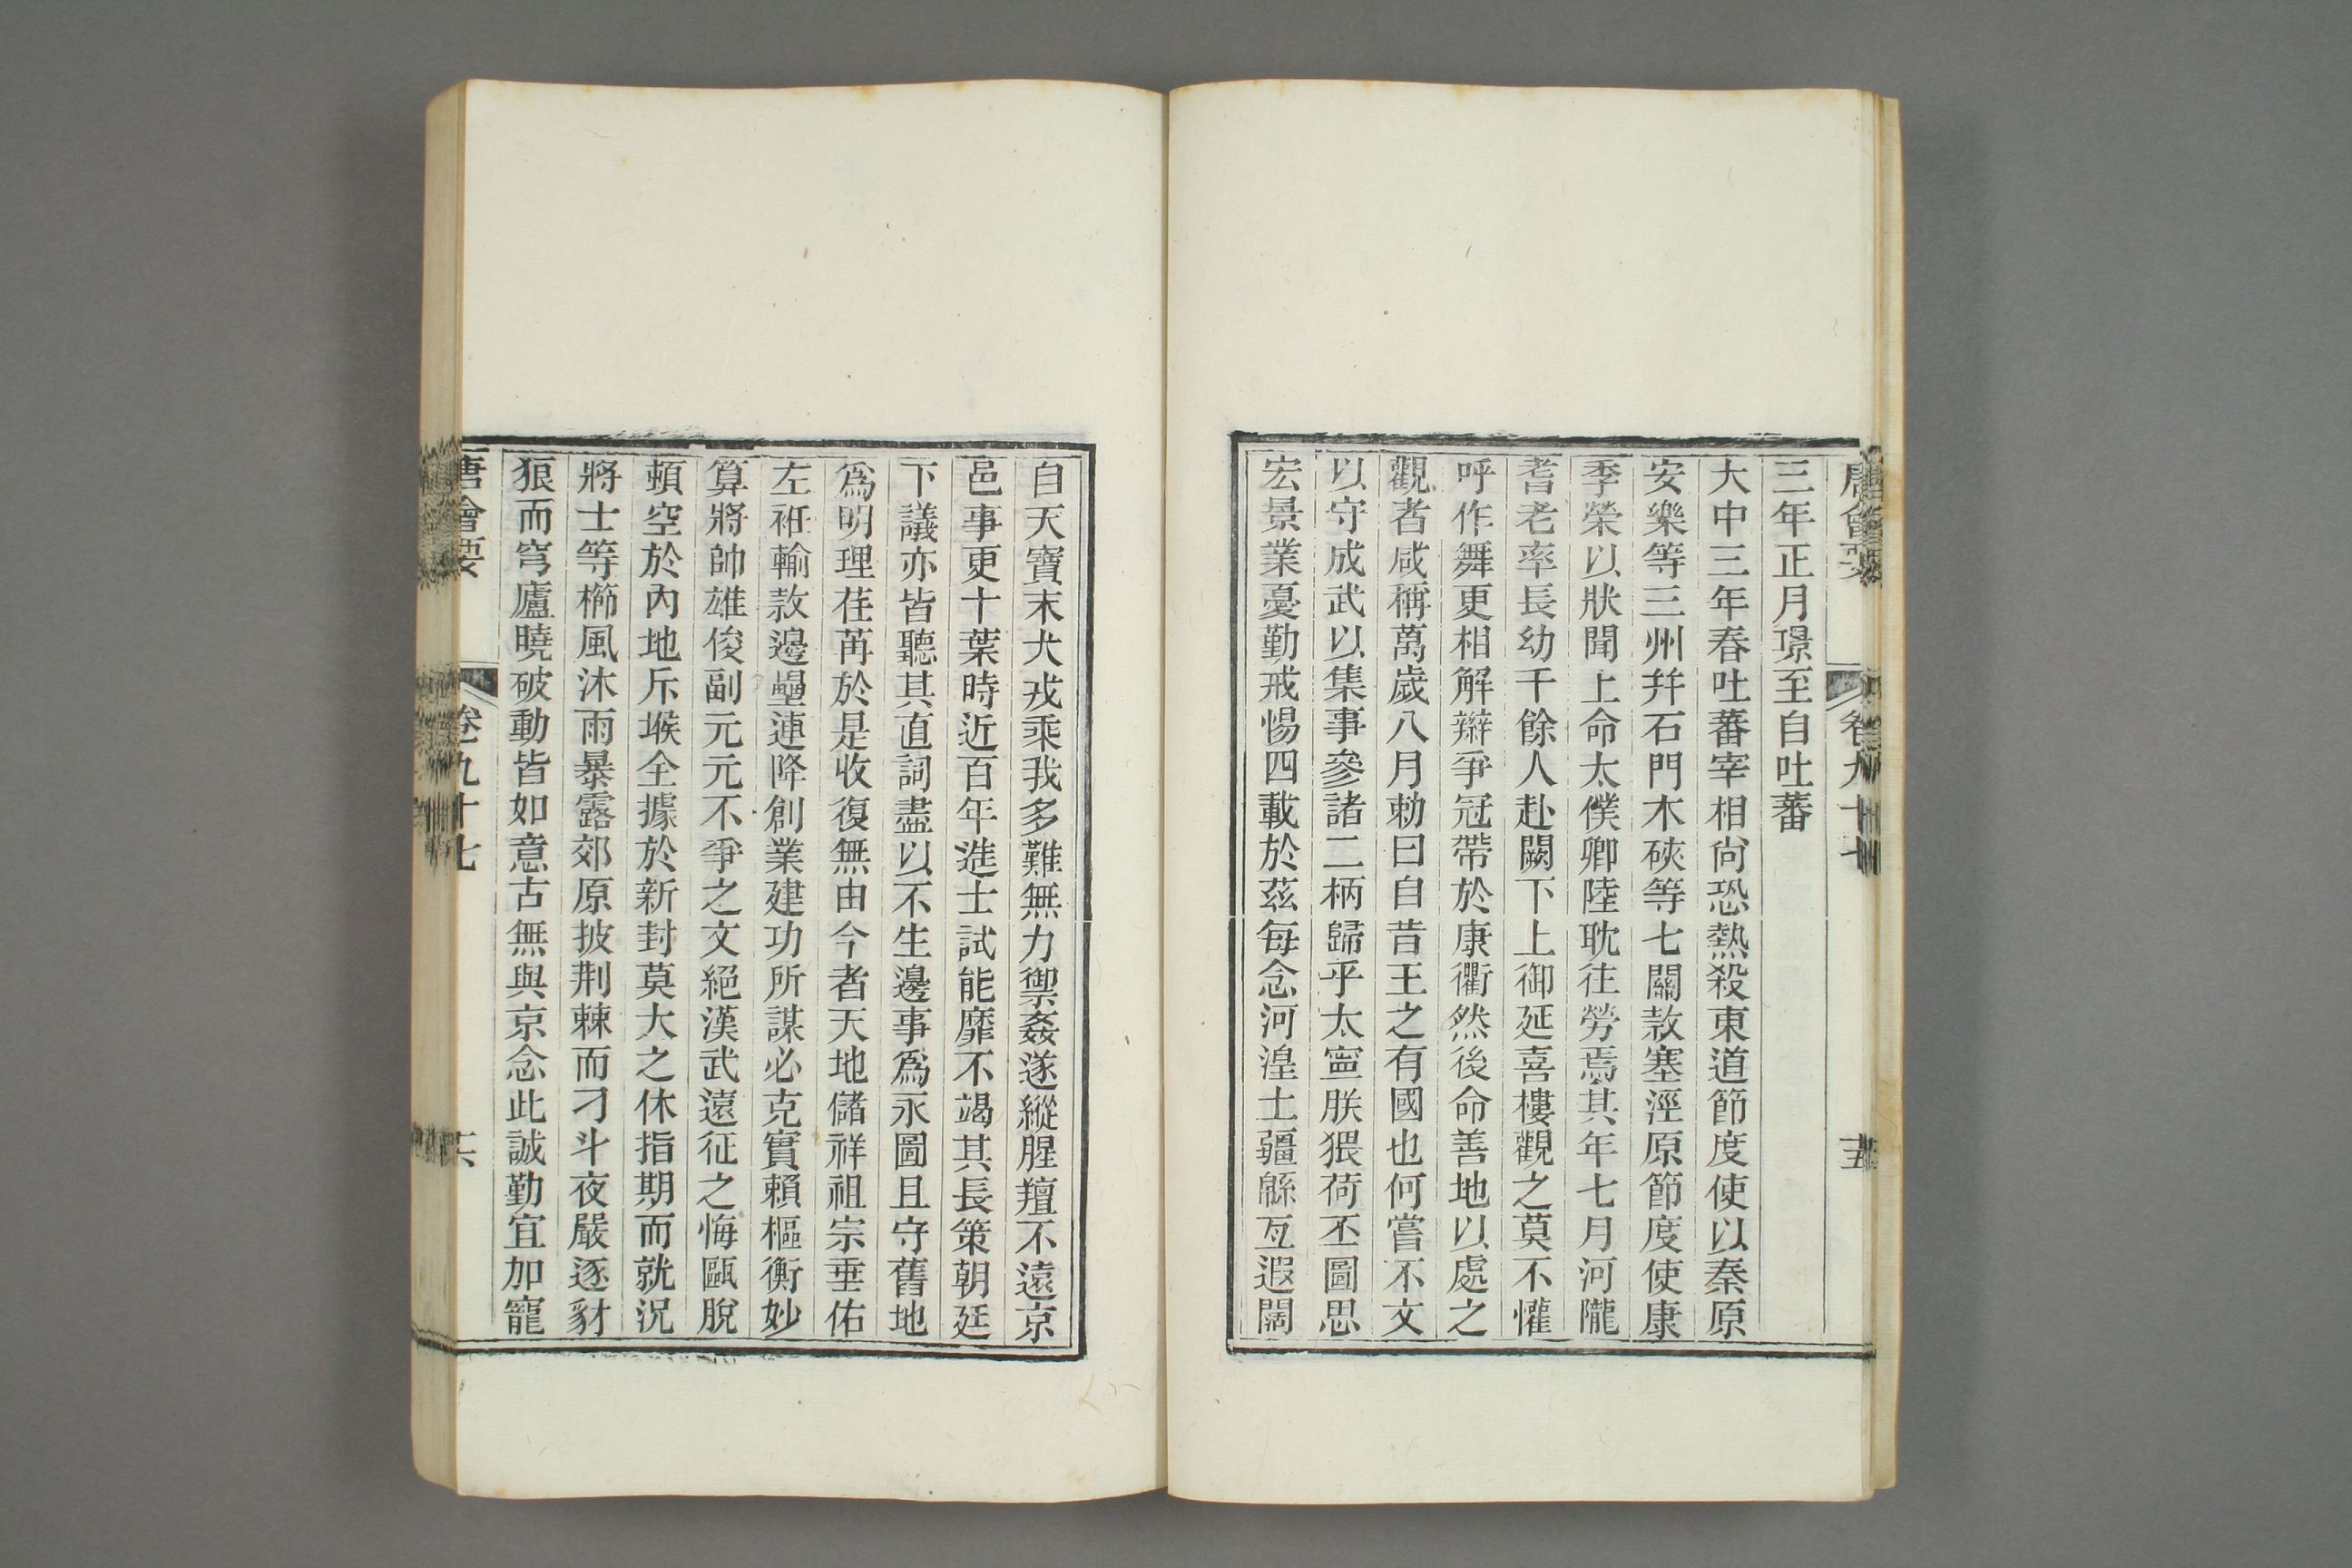 唐會要 卷九十七 十五
三年正月璟至自吐蕃
大中三年春吐蕃宰相尙恐熱殺東道節度使以秦原
安樂等三州并石門木硤等七關款塞涇原節度使康
季榮以狀聞上命太僕卿陸耽往勞焉其年七月河隴
耆老率長幼千餘人赴闕下上御延喜樓觀之莫不懽
呼作舞更相解辮爭冠帶於康衢然後命善地以處之
觀者咸稱萬歲八月勅曰自昔王之有國也何嘗不文
以守成武以集事參諸二柄歸乎太寧朕猥荷丕圖思
宏景業憂勤戒惕四載於茲每念河湟土疆緜亙遐闊
自天寶末犬戎乘我多難無力禦姦遂縱腥羶不遠京
邑事更十葉時近百年進士試能靡不竭其長策朝廷
下議亦皆聽其直詞盡以不生邊事爲永圖且守舊地
爲明理荏苒於是收復無由今者天地儲祥祖宗垂佑
左衽輸款邊壘連降創業建功所謀必克實賴樞衡妙
算將帥雄俊副元元不爭之文絕漢武遠征之悔甌脫
頓空於內地斥堠全據於新封莫大之休指期而就況
將士等櫛風沐雨暴露郊原披荆棘而刁斗夜嚴逐豺
狼而穹廬曉破動皆如意古無與京念此誠勤宜加寵
唐會要 卷九十七 十六